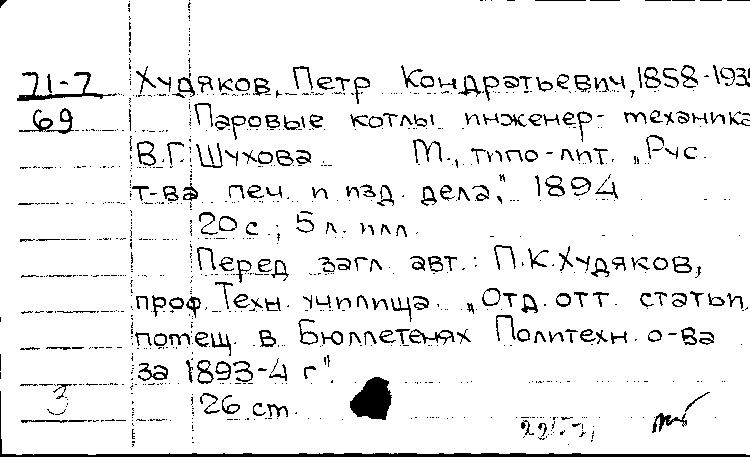 71-7 Худяков, Петр Кондратьевич, 1858-193
69 Паровые котлы инженер-механика
В.Г. Шухова М., типо-лит. „Рус.
т-ва печ. и изд. дела", 1894
20 с.; 5 л. илл.
Перед загл. авт.: П.К.Худяков,
проф. Техн. училища. „Отд. отт. статьи,
помещ. в Бюллетенях Политехн. о-ва
за 1893-4 г".
3 26 cm.